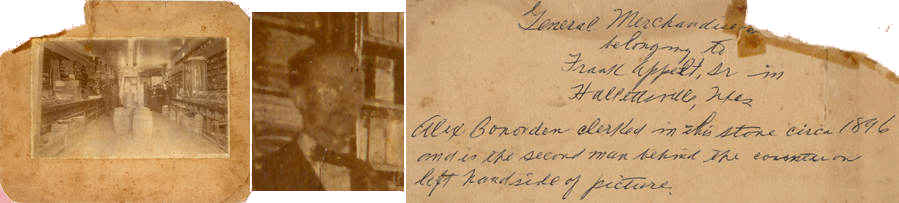 General Merchandise
belonging to
Frank Appelt, Sr in
Hallettsville, Texas
Alex Bonorden clerked in this store circa 1896
and is the second man behind the counter on
left hand side of picture.